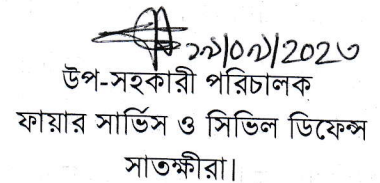 ১৯/০৯/2023
উপ-সহকারী পরিচালক
ফায়ার সার্ভিস ও সিভিল ডিফেন্স
সাতক্ষীরা।